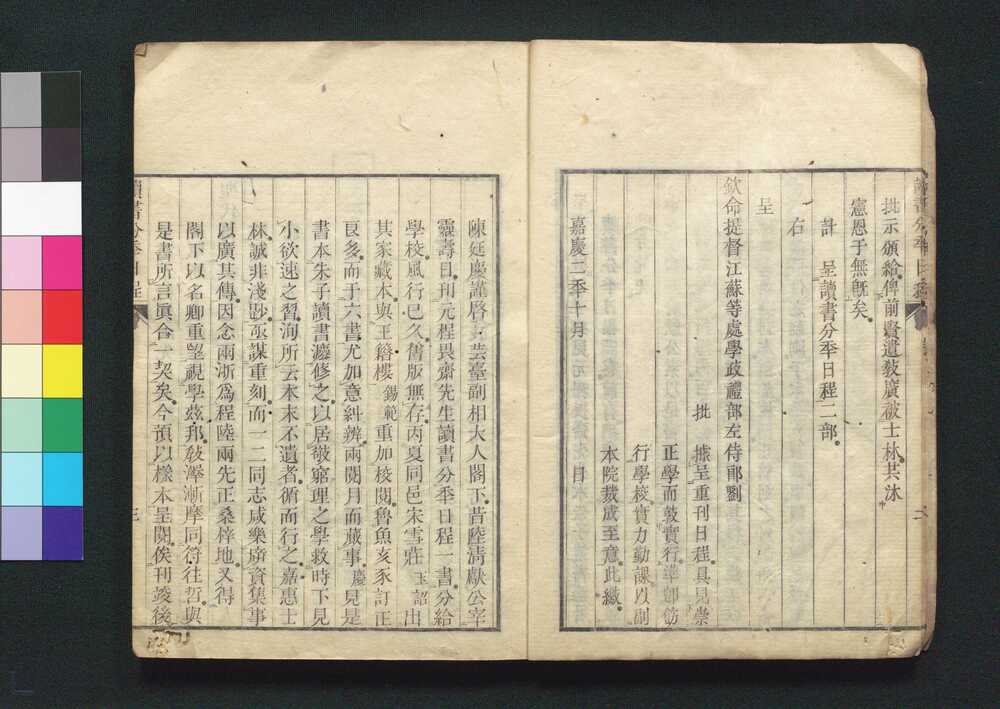 批示頒給俾前賢遺教廣被士林共沐
憲恩于無旣矣
計　呈讀書分秊日程二部
右
呈
欽命提督江蘇等處學政禮部左侍郎劉
批　據呈重刊日程具見崇
正學而敦實行準卽飭
行學校實力勤課以副
本院裁成至意此繳
嘉慶二秊十月　日
讀書分秊日程
三
陳廷慶謹啓芸臺副相大人閣下昔陸淸獻公宰
靈壽日刊元程畏齋先生讀書分秊日程一書分給
學校風行已久舊版無存丙夏同邑宋雪莊玉詔出
其家藏本與王簪樓錫範重加校閱魯魚亥豕訂正
良多而于六書尤加意糾辨兩閱月而蕆事慶見是
書本朱子讀書灋修之以居敬窮理之學救時下見
小欲速之習洵所云本末不遺者循而行之嘉惠士
林誠非淺尠亟謀重刻而一二同志咸樂廣資集事
以廣其傳因念兩浙爲程陸兩先正桑梓地又得
閣下以名卿重望視學玆邦敎澤漸摩同符往哲與
是書所言眞合一契矣今預以樣本呈閱俟刊竣後